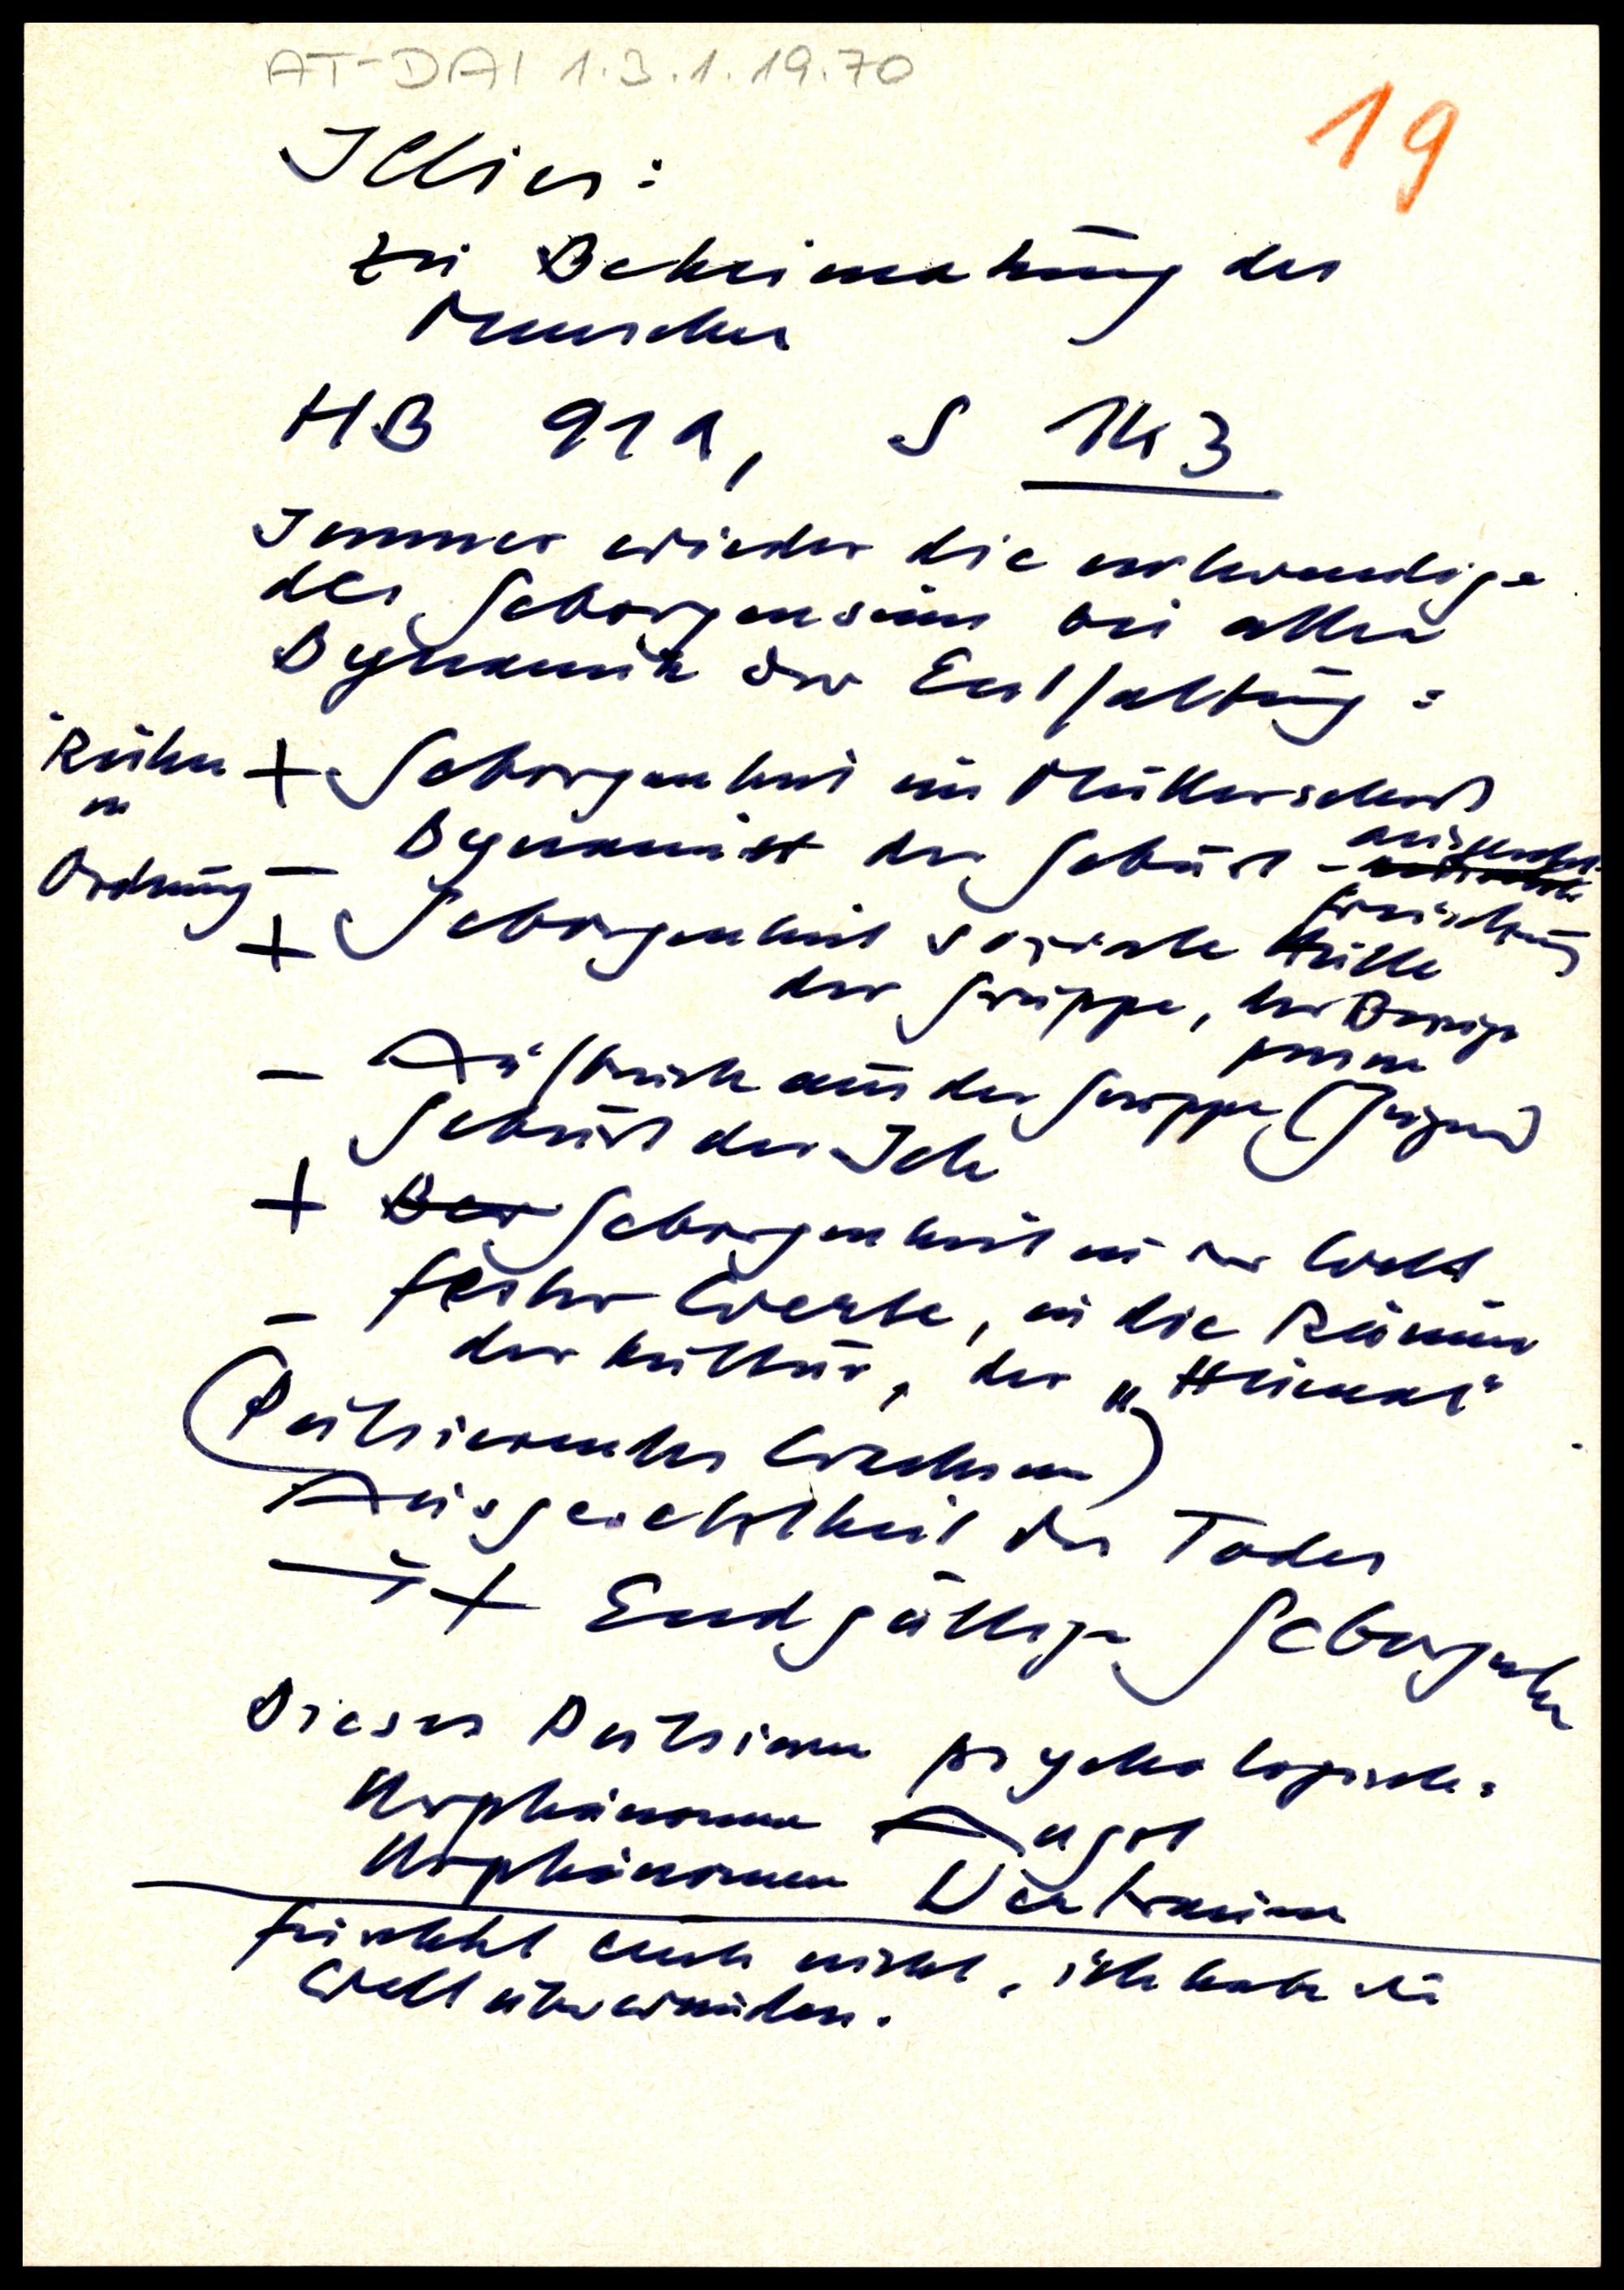 AT-DAI 1.3.1.19.70
19
Illies:
zu Beheimatung des
Menschen
HB 911, S 143
Immer wieder die notwendige
des Geborgenseins bei aller
Dynamik der Entfaltung:
Ruhe + Geborgenheit im Mutterschoß
in
Ordnung - Dynamik der Geburt -
+ Geborgenheit soziale Hülle
der Gruppe, der Bezugs
person
- Aufbruch aus der Gruppe (Jugend)
Geburt des Ich
+ Geborgenheit in der Welt
fester Werte, in die Räume
- der Kultur, der "Heimat"
(Pulsierendes Wachsen)
Ausgesetztheit des Todes
→ + Endgültige
Dieses Pulsieren psychologisch:
Urphänomen Angst
Urphänomen Vertrauen
Fürchtet euch nicht, ich habe die
Welt überwunden.